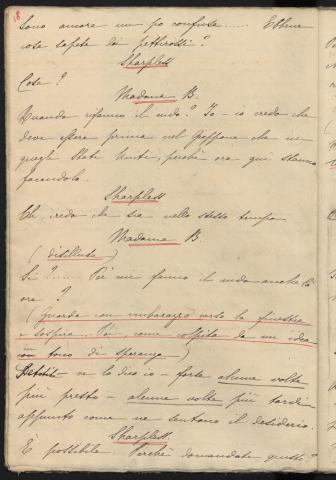 18
Sono ancora un po confusa..... Ebbene
cosa sapete dei pettirossi?
Sharpless
Cosa?
Madama B.
Quando rifanno il nido? Io - io credo che
deve essere prima nel Giappone che in
quegli Stati Uniti, perchè ora qui stanno
facendolo.
Sharpless
Eh, credo che sia nello stesso tempo
Madama B.
(disillusa)
Si?..... Per mi fanno il nido anche là
ora?
(Guarda con imbarazzo verso la finestra
e sospira. Poi, come colpita da un'idea
in tono di speranza)
ve lo dico io - forse alcune volte
più presto - alcune volte più tardi
appunto come ne sentono il desiderio.
Sharpless
È possibile. Perchè domandate questo?